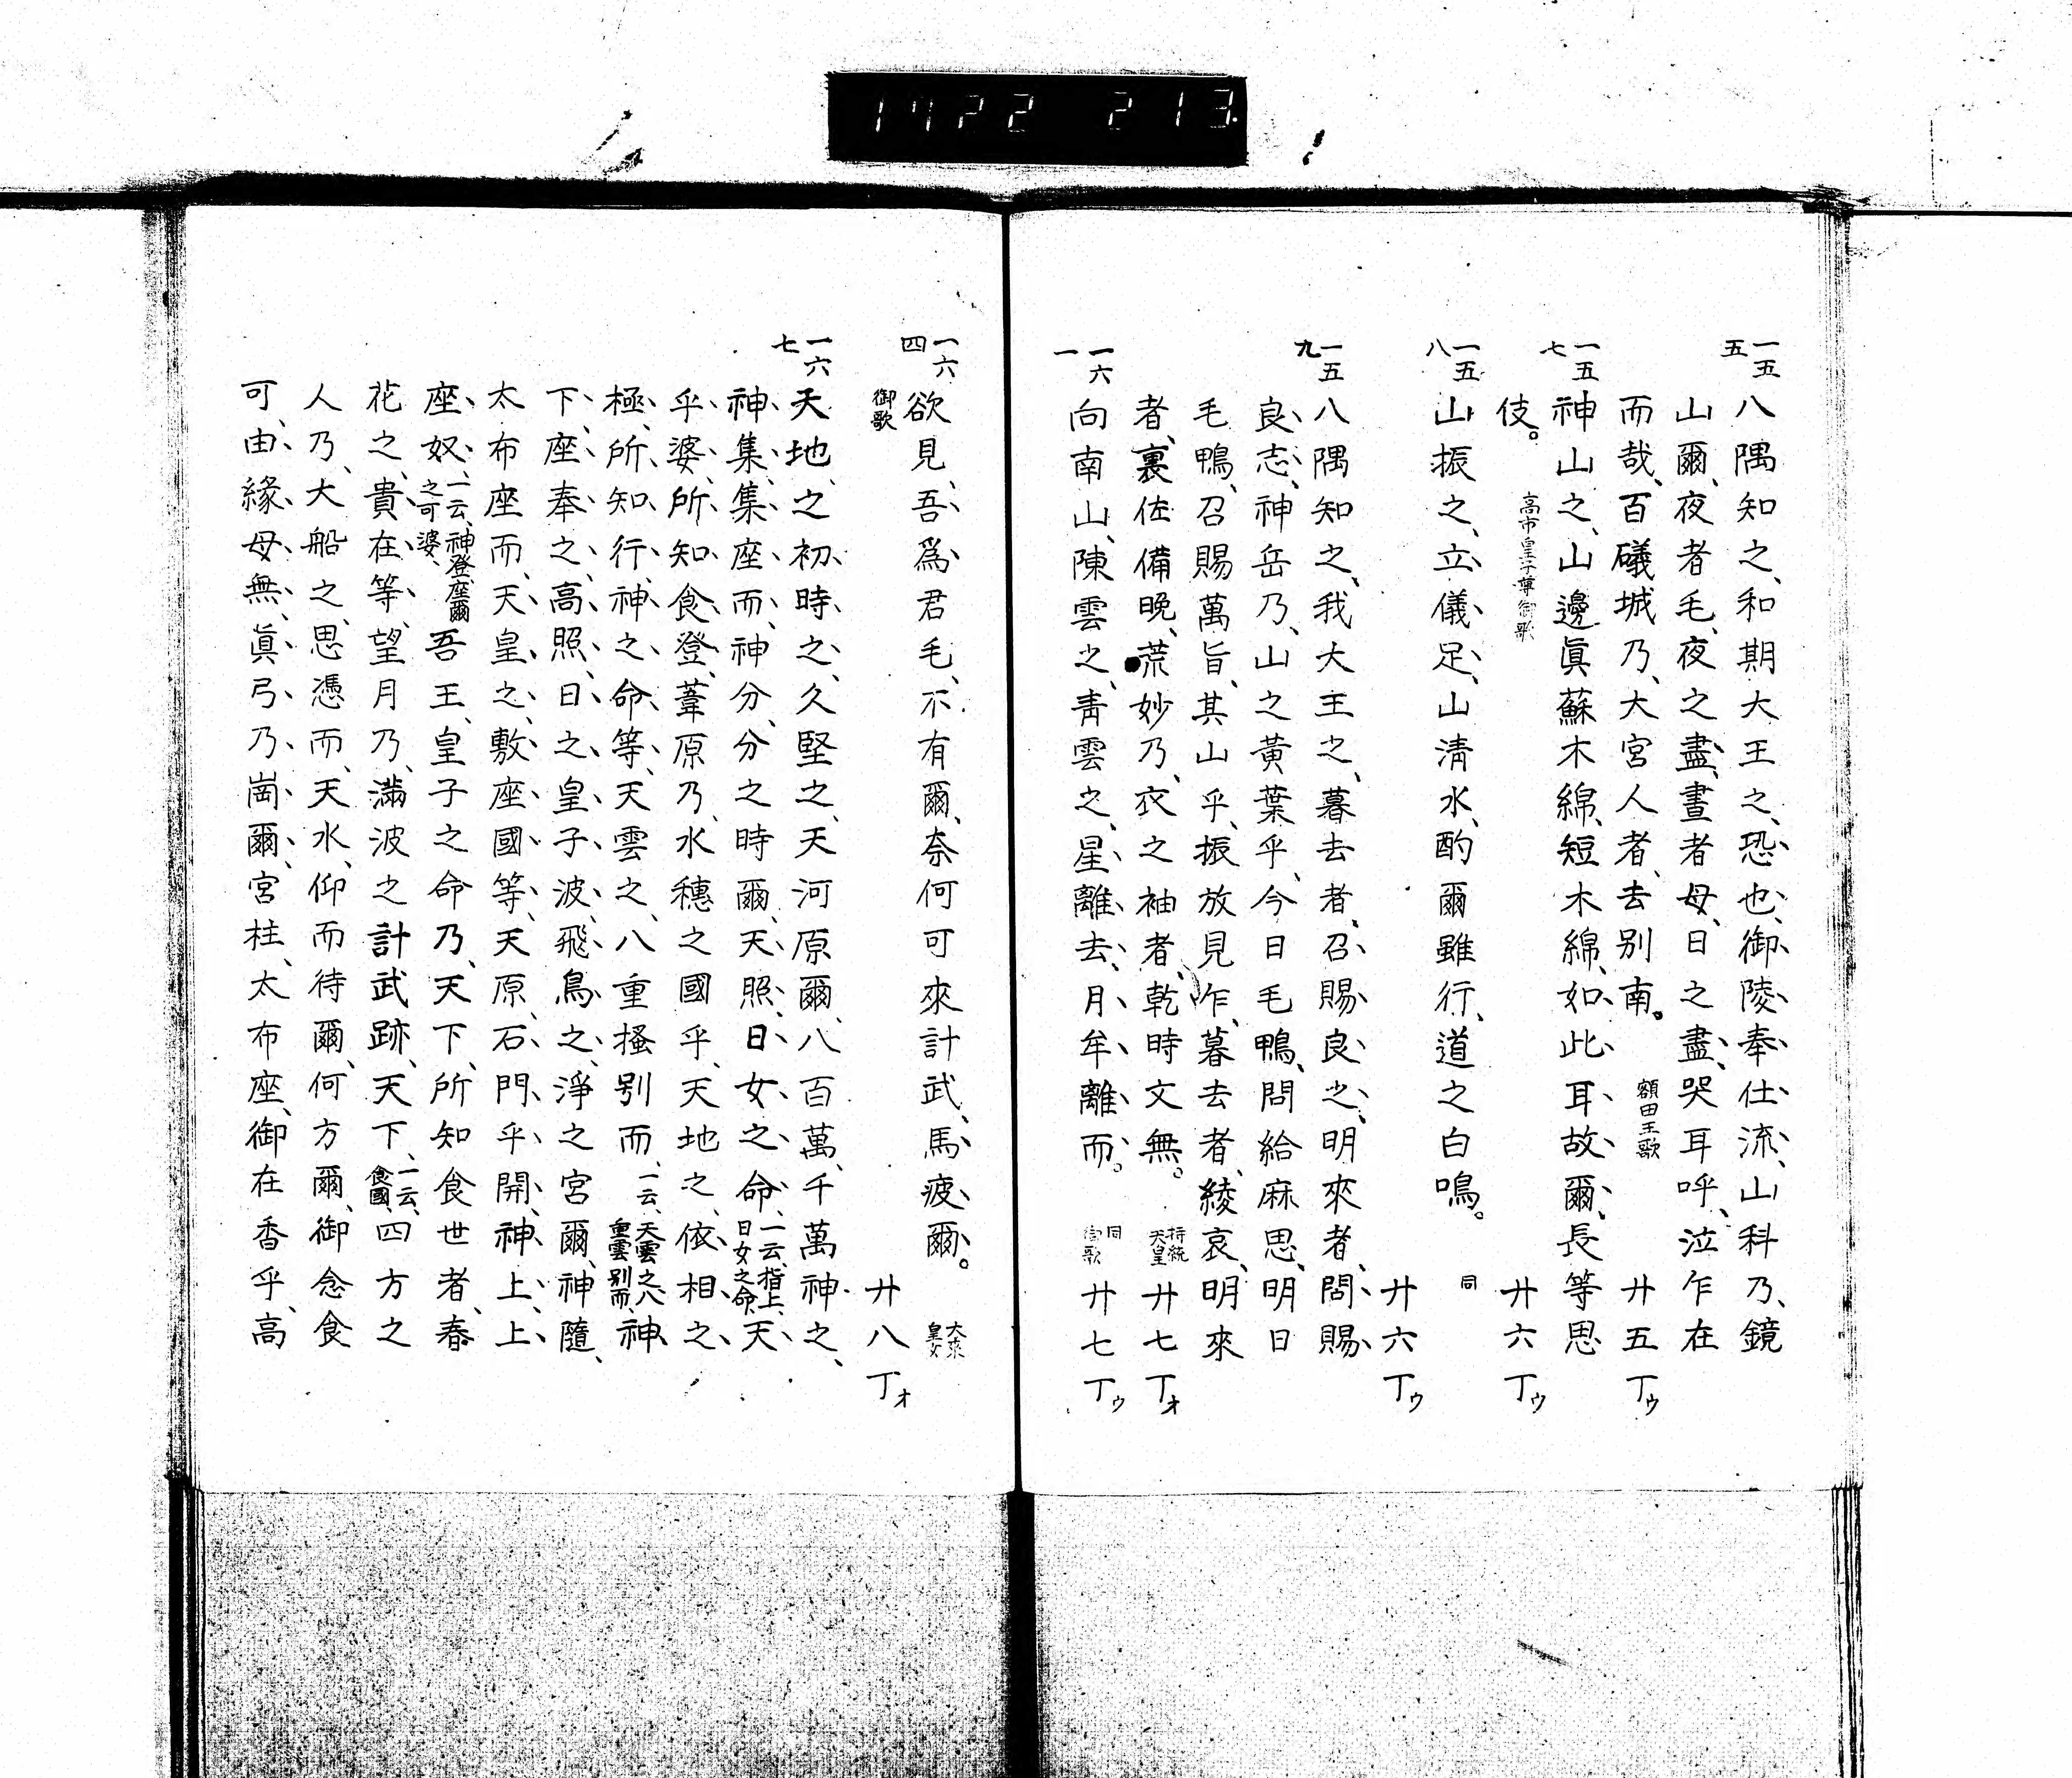 1722 213
一五五
八隅知之、和期大王之、恐也、御陵奉仕流、山科乃、鏡
山爾、夜者毛、夜之盡、晝者母、日之盡、哭耳呼、泣乍在
而哉、百礒城乃、大宮人者、去別南。 額田王歌 廿五丁ウ
一五七
神山之、山邊眞蘇木綿、短木綿、如此耳故爾、長等思
伎。 高市皇子尊御歌 廿六丁ウ
一五八
山振之、立儀足、山淸水、酌爾雖行、道之白鳴。 同 廿六丁ウ
一五九
八隅知之、我大王之、暮去者、召賜良之、明來者、問賜
良志、神岳乃、山之黃葉乎、今日毛鴨、問給麻思、明日
毛鴨、召賜萬旨、其山乎、振放見乍、暮去者、綾哀、明來
者、裏佐備晩、荒妙乃、衣之袖者、乾時文無。 持統天皇 廿七丁オ
一六一
向南山、陳雲之、靑雲之、星離去、月牟離而。 同御歌 廿七丁ウ
一六四
欲見、吾爲君毛、不有爾、奈何可來計武、馬疲爾。 大來皇女
御歌 廿八丁オ
一六七
天地之、初時之、久堅之、天河原爾、八百萬、千萬神之、
神集、集座而、神分、分之時爾、天照、日女之命、一云、指上、日女之命、天
乎婆、所知食登、葦原乃、水穗之國乎、天地之、依相之、
極、所知行、神之命等、天雲之、八重搔別而、一云、天雲之八重雲別而、神
下、座奉之、高照、日之皇子波、飛鳥之、淨之宮爾、神隨、
太布座而、天皇之、敷座國等、天原、石門乎開、神上、上
座奴、一云、神登座爾之可婆、吾王、皇子之命乃、天下、所知食世者、春
花之、貴在等、望月乃、滿波之計武跡、天下、一云、食國、四方之
人乃、大船之、思憑而、天水、仰而待爾、何方爾、御念食
可、由緣母無、眞弓乃、崗爾、宮柱、太布座、御在香乎、高